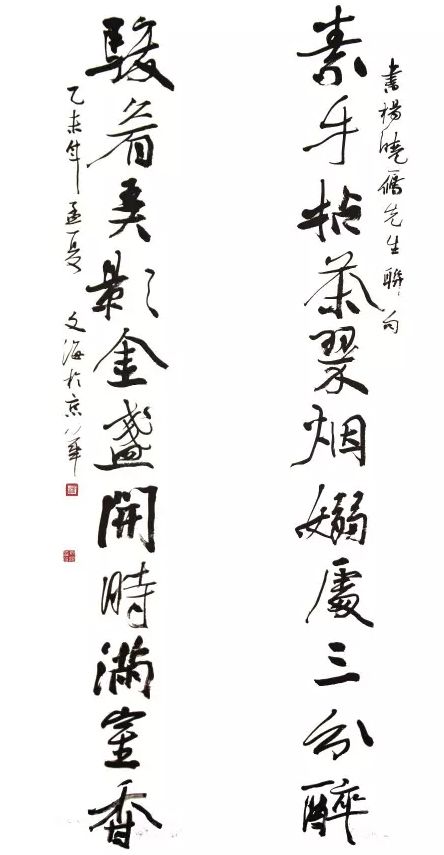 書楊曉先生聯句
素手拈茶翠烟嫋處三分醉
駿眉弄影金盞開時滿室香
乙未年孟夏 文海於京華